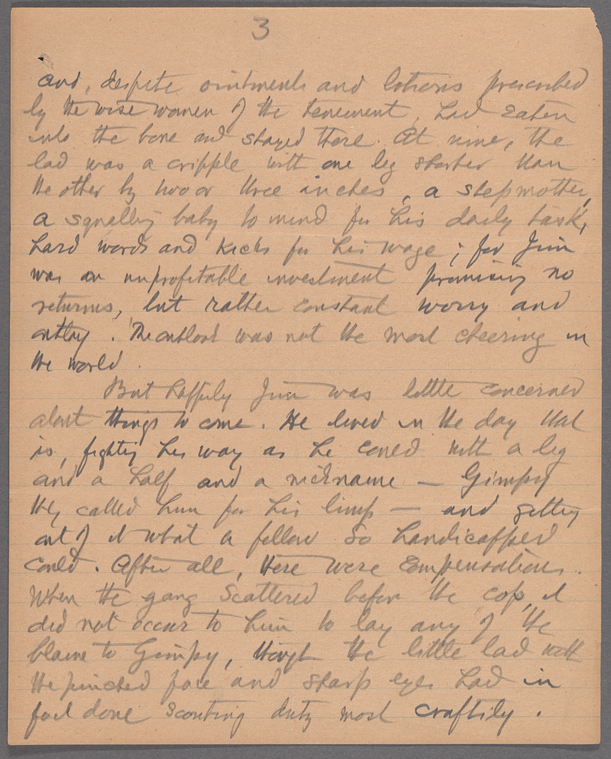 3
and, despite ointments and lotions prescribed
by the wise women of the tenement, had eaten
into the bone and stayed there. At nine, the
lad was a cripple with one leg shorter than
the other by two or three inches, a stepmother,
a squalling baby to mind for his daily task,
hard words and kicks for his wage; for Jim
was an unprofitable investment promising no
returns, but rather constant worry and
outlay. The outlook was not the most cheering in
the world.
But happily Jim was little concerned
about things to come. He lived in the day that
is, fighting his way as he could with a leg
and a half and a nickname — Gimpy
they called him for his limp — and getting
out of it what a fellow so handicapped
could. After all, there were compensations.
When the gang scattered before the cop, it
did not occur to him to lay any of the
blame to Gimpy, though the little lad with
the pinched face and sharp eyes had in
fact done scouting duty most craftily.